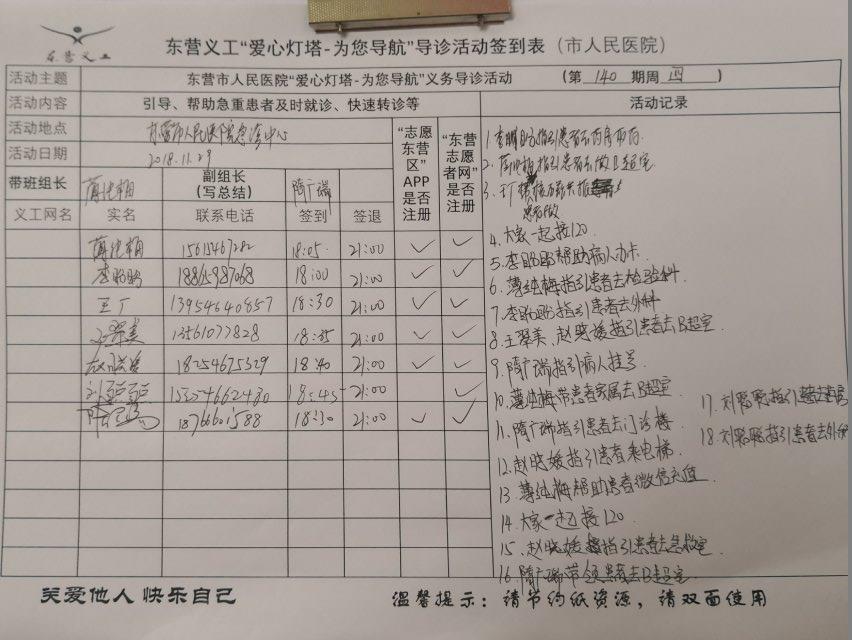 东营义工
东营义工“爱心灯塔-为您导航”导诊活动签到表（市人民医院）
活动主题 东营市人民医院“爱心灯塔-为您导航”义务导诊活动 （第 140 期周 四 ）
活动内容 引导、帮助急重患者及时就诊、快速转诊等 活动记录
活动地点 东营市人民医院急诊中心
活动日期 2018.11.29
带班组长 薄纯梅 副组长（写总结） 隋广瑞
“志愿东营区”APP是否注册
“东营志愿者网”是否注册
义工网名 实名 联系电话 签到 签退
薄纯梅 18:05 21:00 ✓ ✓
李盼盼 18865987068 18:00 21:00 ✓ ✓
王丁 13954640857 18:30 21:00 ✓ ✓
王翠美 13561077828 18:35 21:00 ✓ ✓
赵晓媛 18254675329 18:40 21:00 ✓ ✓
刘聪聪 15554662480 18:45 21:00 ✓
18:30 21:00 ✓ ✓
4.大家一起接120.
5.李盼盼帮助病人办卡
6.薄纯梅指引患者去检验科.
7.李盼盼指引患者去外科
8.王翠美、赵晓媛指引患者去B超室.
9.隋广瑞指引病人挂号
10.薄纯梅带患者家属去B超室.
11.隋广瑞指引患者去门诊楼
12.赵晓媛指引患者乘电梯
13.薄纯梅帮助患者微信充值
14.大家一起接120.
15.赵晓媛指引患者去急救室.
16.隋广瑞带领患者去B超室.
17.刘聪聪指引患者去
18.刘聪聪指引患者去外科
关爱他人 快乐自己
温馨提示：请节约纸资源，请双面使用